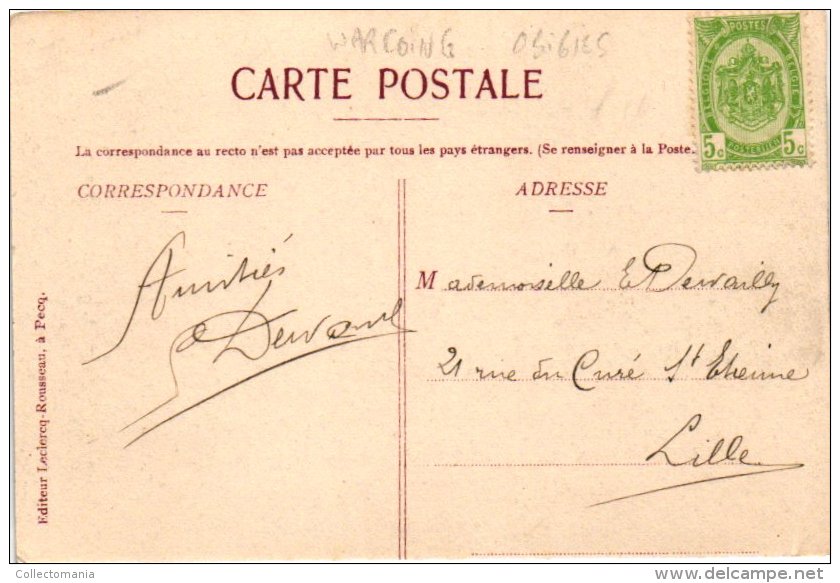 WARCOING OBIGIES
CARTE POSTALE
La correspondance au recto n'est pas acceptée par tous les pays étrangers. (Se renseigner à la Poste.
CORRESPONDANCE
ADRESSE
Amitiés
Mademoiselle E Dervailly
21 rue du Curé St Etienne
Lille
Editeur Leclercq-Rousseau, à Pecq.
POSTES
BELGIQUE
BELGIE
POSTERIJEN
5c 5c
Collectomania
delcampe.net